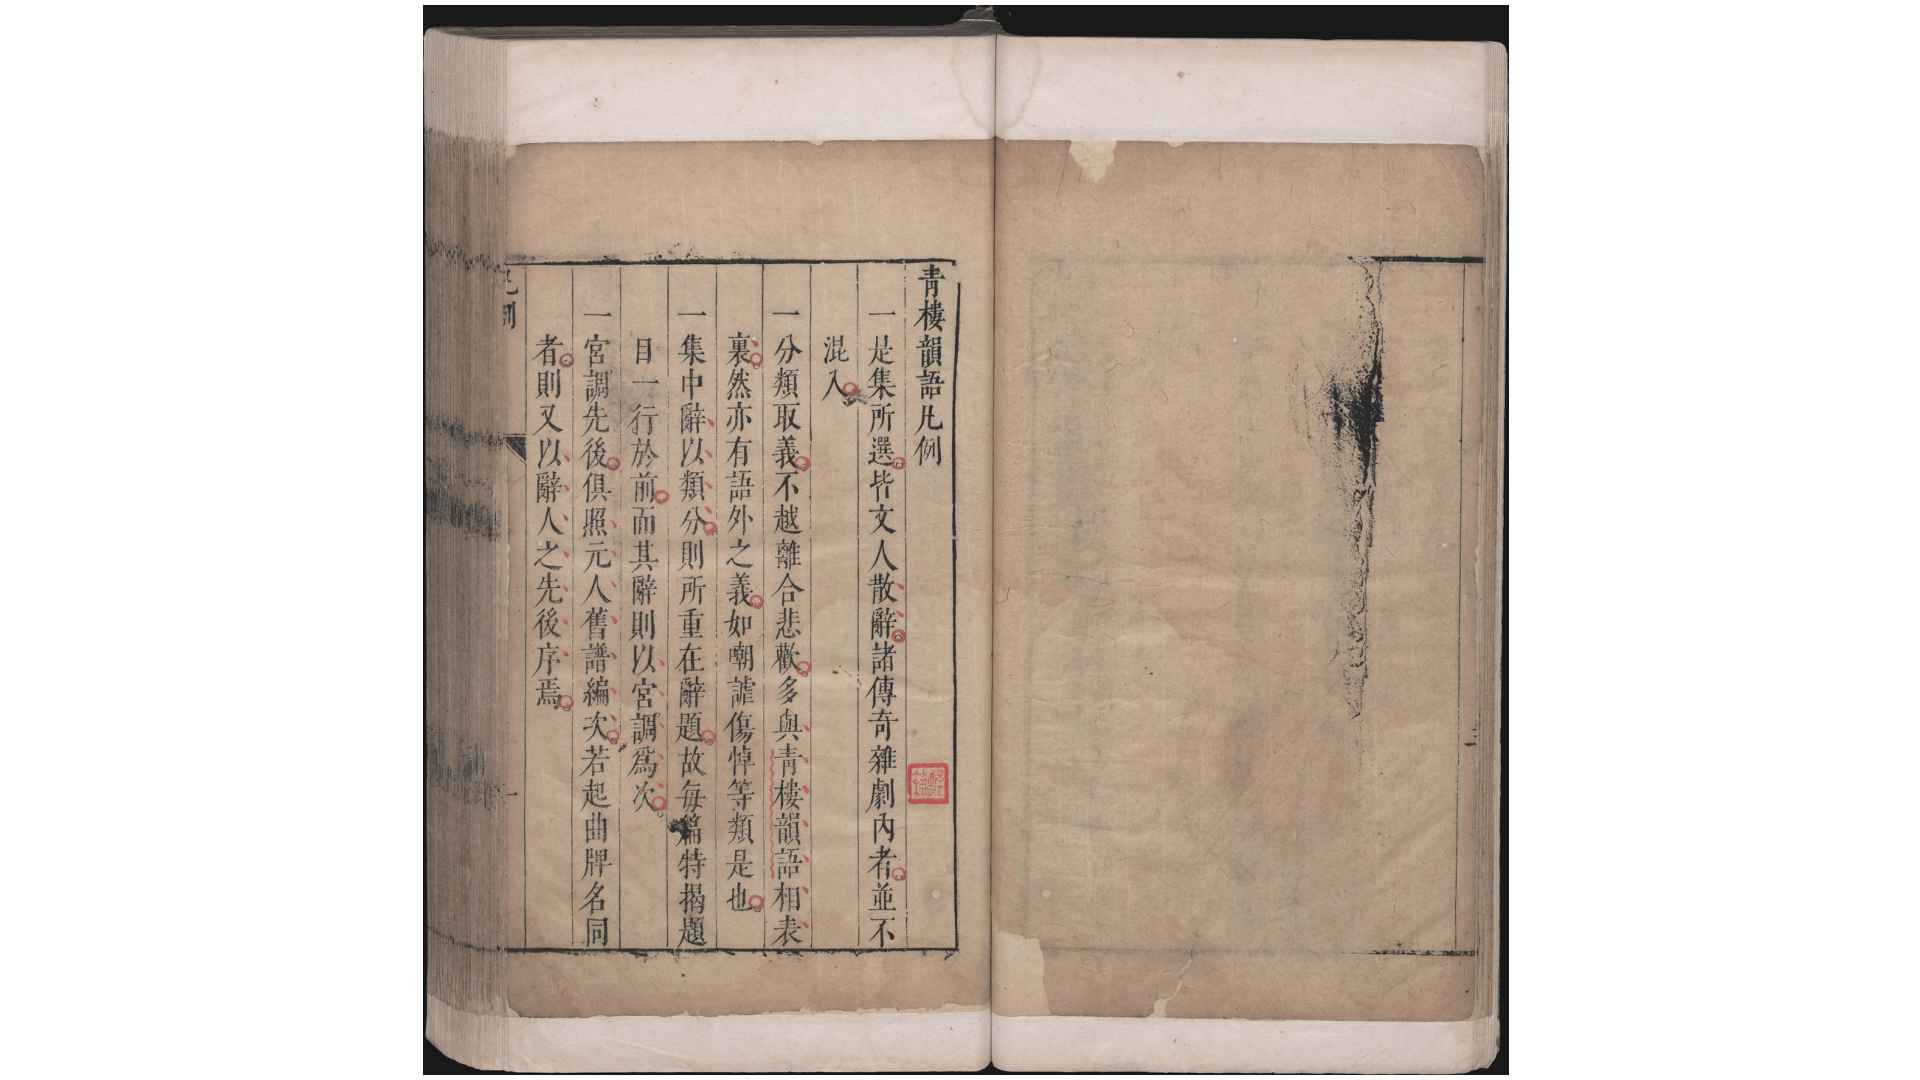 青樓韻語凡例
一是集所選皆文人散辭諸傳奇雜劇內者並不
混入
一分類取義不越離合悲歡多與青樓韻語相表
裏然亦有語外之義如嘲謔傷悼等類是也
一集中辭以類分則所重在辭題故每篇特揭題
目一行於前而其辭則以宮調爲次
一宮調先後俱照元人舊譜編次若起曲牌名同
者則又以辭人之先後序焉
凡例
一